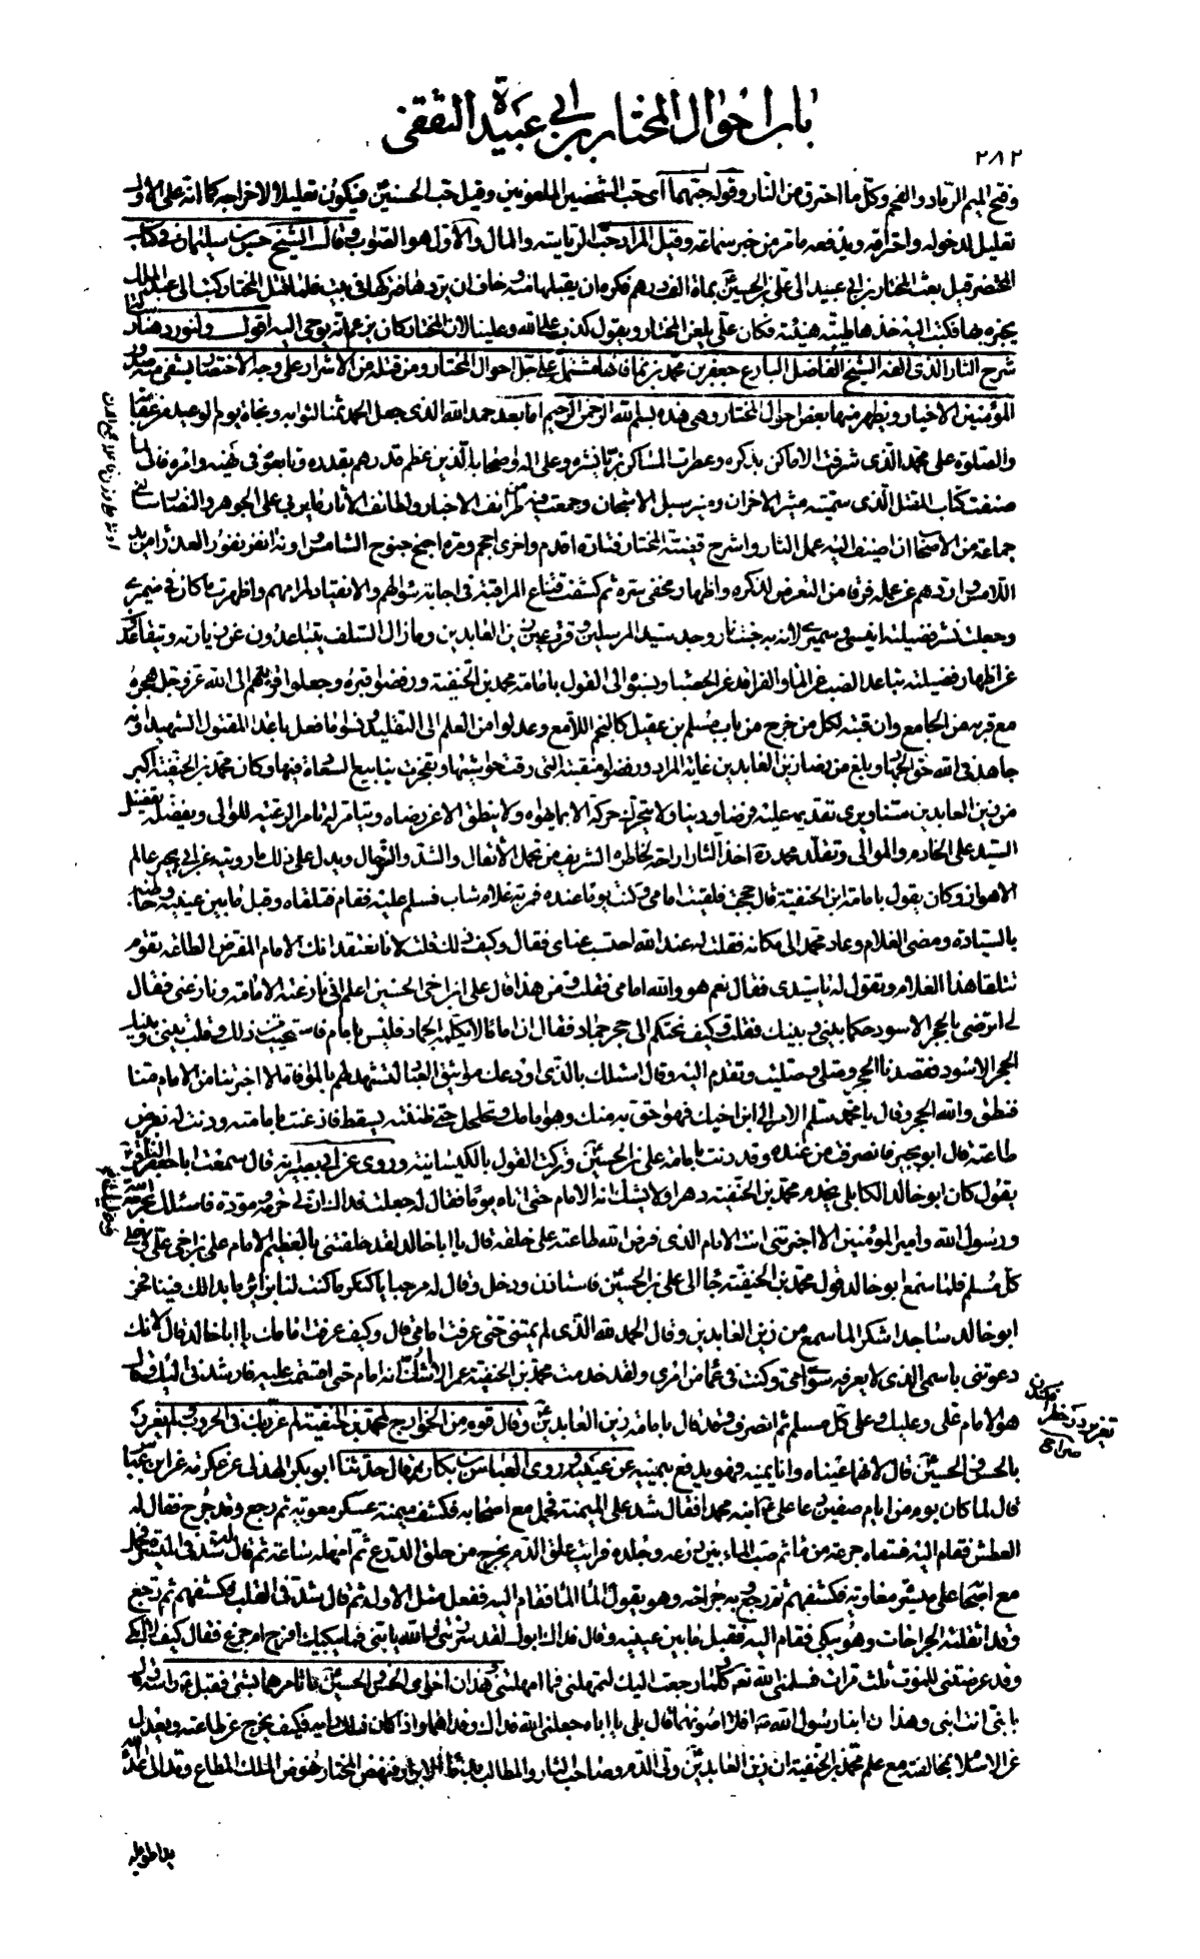 باب احوال المختار بن ابي عبيدة الثقفي
٢٨٢
وفتح الميم الرماد والفحم وكل ما احترق من النار وقوله حبهما اى حب الشخصين الملعونين وقيل حب الحسنين فيكون تعليلا لاخراجه كما انه على الاول
تعليل لدخوله واحتراقه ويدفعه ما مر من خبر سماعة وقيل المراد حب الرياسة والمال والاول هو الصواب وقال الشيخ حسن بن سليمان في كتاب
المختصر قيل بعث المختار بن ابي عبيد الى علي بن الحسين بمائة الف درهم فكره ان يقبلها منه وخاف ان يردها فتركها في بيت فلما قتل المختار كتب الى عبد الملك
يخبره بها فكتب اليه خذها طيبة هنيئة فكان علي يلعن المختار ويقول كذب على الله وعلينا لان المختار كان يزعم انه يوحى اليه اقول ولنورد هنا
شرح الثار الذى الفه الشيخ الفاضل البارع جعفر بن محمد بن نما فانها مشتمل على جل احوال المختار ومن قتله من الاشرار على وجه الاختصار ليشفى به صدور
المؤمنين الاخيار وليظهر منها بعض احوال المختار وهى هذه بسم الله الرحمن الرحيم اما بعد حمد الله الذى جعل الحمد ثمنا لثوابه ونجاة يوم الوعيد من عقابه
والصلوة على محمد الذى شرفت الاماكن بذكره وعطرت المساكن بريا نشره وعلى اله واصحابه الذين عظم قدرهم بقدره وتابعوه في نهيه وامره فانى لما
صنفت كتاب المقتل الذى سميته مثير الاحزان ومنير سبل الاشجان وجمعت فيه من طرائف الاخبار ولطائف الاثار ما يربى على الجوهر والنضار سالنى
جماعة من الاصحاب ان اضيف اليه عمل الثار واشرح قضية المختار فتارة اقدم واخرى احجم ومرة اجنح جنوح الشامس واونة انفر نفور العذراء من يد
اللامس واردهم عن عمله فرقا من التعرض لذكره واظهار مخفى سره ثم كشفت قناع المراقبة في اجابة سؤالهم والانقياد لمرامهم واظهرت ما كان في ضميرى
وجعلت نشر فضيلته انيسى وسميرى لانه به خبت نار وجد سيد المرسلين وقرة عين زين العابدين وما زال السلف يتباعدون عن زيارته ويتقاعدون
عن اظهار فضيلته تباعد الضب عن الماء والفراقد عن الحصباء ونسبوه الى القول بامامة محمد بن الحنفية ورفضوا قبره وجعلوا قربهم الى الله عز وجل هجره
مع قربه من الجامع وان قبته لكل من خرج من باب مسلم بن عقيل كالنجم اللامع وعدلوا من العلم الى التقليد ونسوا ما فعل باعداء المقتول الشهيد وانه
جاهد في الله حق الجهاد وبلغ من رضا زين العابدين غاية المراد ورفضوا منقبته التى رقت حواشيها وتفجرت ينابيع السعادة فيها وكان محمد بن الحنفية اكبر
من زين العابدين سنا ويرى تقديمه عليه فرضا ودينا ولا يتحرك حركة الا بما يهواه ولا ينطق الا عن رضاه ويتامر له تامر الرعية للوالى ويفضله تفضيل
السيد على الخادم والموالى وتقلد محمد ره اخذ الثار اراحة لخاطره الشريف من تحمل الاثقال والشد والترحال ويدل على ذلك ما رويته عن ابى بجير عالم
الاهواز وكان يقول بامامة ابن الحنفية قال حججت فلقيت امامى وكنت يوما عنده فمر به غلام شاب فسلم عليه فقام فتلقاه وقبل ما بين عينيه وخاطبه
بالسيادة ومضى الغلام وعاد محمد الى مكانه فقلت له عند الله احتسب عناى فقال وكيف ذلك قلت لانا نعتقد انك الامام المفترض الطاعة تقوم
تتلقا هذا الغلام وتقول له يا سيدى فقال نعم هو والله امامى فقلت ومن هذا قال على ابن اخى الحسين اعلم انى نازعته الامامة ونازعنى فقال
لى اترضى بالحجر الاسود حكما بينى وبينك فقلت وكيف نحتكم الى حجر جماد فقال ان اماما لا يكلمه الجماد فليس بامام فاستحييت من ذلك وقلت بينى وبينك
الحجر الاسود فقصدنا الحجر وصلى وصليت وتقدم اليه وقال اسئلك بالذى اودعك مواثيق العباد لتشهد لهم بالموافاة الا اخبرتنا من الامام منا
فنطق والله الحجر وقال يا محمد سلم الامر الى ابن اخيك فهو احق به منك وهو امامك وتحلحل حتى ظننته يسقط فاذعنت بامامته ودنت له بفرض
طاعته قال ابو بجير فانصرفت من عنده وقد دنت بامامة على بن الحسين وتركت القول بالكيسانية وروى عن ابى بصير انه قال سمعت ابا جعفر الباقر
يقول كان ابو خالد الكابلى يخدم محمد بن الحنفية دهرا ولا يشك انه الامام حتى اتاه يوما فقال له جعلت فداك ان لى حرمة ومودة فاسئلك بحرمة
ورسول الله وامير المؤمنين الا اخبرتنى انت الامام الذى فرض الله طاعته على خلقه قال يا ابا خالد لقد حلفتنى بالعظيم الامام على بن اخى على وعليك وعلى
كل مسلم فلما سمع ابو خالد قول محمد بن الحنفية جاء الى على بن الحسين فاستاذن ودخل فقال له مرحبا يا كنكر ما كنت لنا بزائر ما بدا لك فينا فخر
ابو خالد ساجدا شكرا لما سمع من زين العابدين وقال الحمد لله الذى لم يمتنى حتى عرفت امامى قال وكيف عرفت امامك يا ابا خالد قال لانك
دعوتنى باسمى الذى لا يعرفه سوى امى وكنت في عمياء من امرى ولقد خدمت محمد بن الحنفية عمرا لا اشك انه امام حتى اقسمت عليه فارشدنى اليك فقال
هو الامام على وعليك وعلى كل مسلم ثم انصرف وقد قال بامامة زين العابدين وقال قوم من الخوارج لمحمد بن الحنفية لم غرر بك في الحروب ولم يغرر
بالحسن والحسين قال لانهما عيناه وانا يمينه فهو يدفع بيمينه عن عينيه وروى العباس بن بكار قال حدثنا ابو بكر الهذلى عن عكرمة عن ابن عباس
قال لما كان يوم من ايام صفين دعا على ابنه محمدا فقال شد على الميمنة فحمل مع اصحابه فكشف ميمنة عسكر معوية ثم رجع وقد جرح فقال له
العطش فقام اليه فسقاه جرعة من ماء ثم صب الماء بين درعه وجلده فرايت علق الدم يخرج من حلق الدرع ثم امهله ساعة ثم قال شد في الميسرة فحمل
مع اصحابه على ميسرة معاوية فكشفهم ثم رجع وبه جراحة وهو يقول الماء الماء فقام اليه ففعل مثل الاول ثم قال شد في القلب فكشفهم ثم رجع
وقد اثقلته الجراحات وهو يبكى فقام اليه فقبل ما بين عينيه وقال فداك ابوك لقد سررتنى والله يا بنى فما يبكيك افرح ام جزع فقال كيف لا ابكى
وقد عرضتنى للموت ثلث مرات فسلمنى الله تعالى وكلما رجعت اليك لتمهلنى فما امهلتنى وهذان اخواى الحسن والحسين ما تامرهما بشئ فقبل راسه وقال
يا بنى انت ابنى وهذان ابنا رسول الله ص افلا اصونهما قال بلى يا اباه جعلنى الله فداك وفداهما واذا كان ذلك رايه فكيف يخرج عن طاعته ويعدل
عن الاسلام بمخالفته مع علم محمد بن الحنفية ان زين العابدين ولى الدم وصاحب الثار والمطالب بدماء الابرار فنهض المختار نهوض الملك المطاع ومد الى اعداء الله